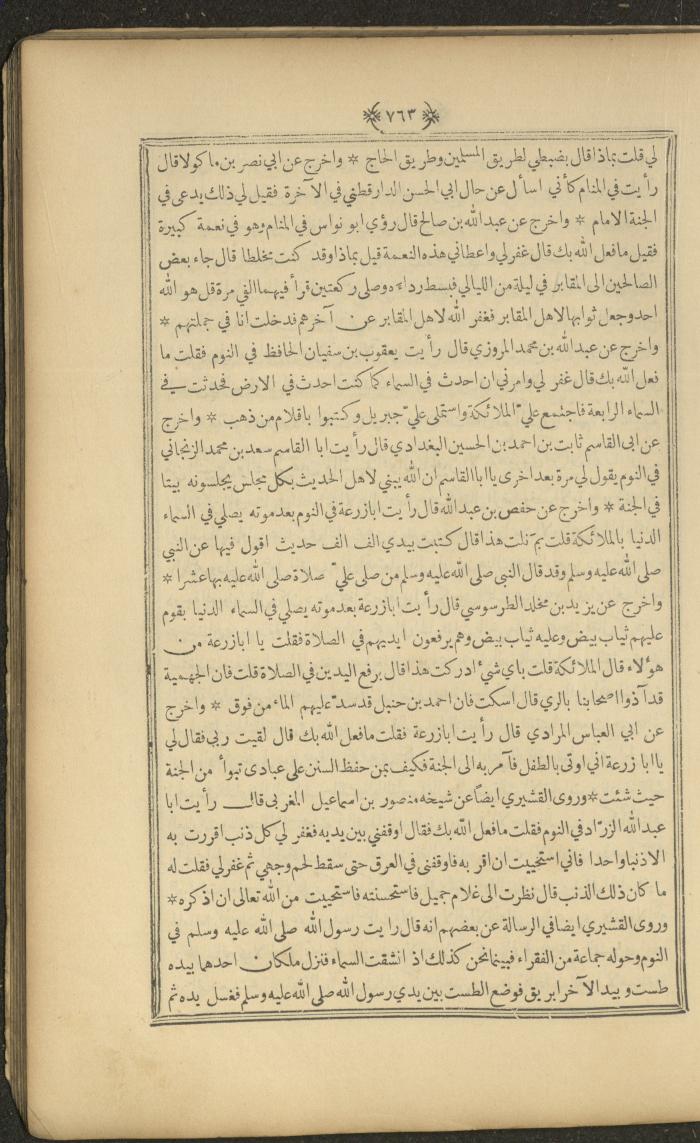 ٧٦٣
لي قلت بماذا قال بضبطي لطريق المسلمين وطريق الحاج * واخرج عن ابي نصر بن ماكولا قال
رأيت في المنام كأني اسأل عن حال ابي الحسن الدارقطني في الآخرة فقيل لي ذلك يدعى في
الجنة الامام * واخرج عن عبدالله بن صالح قال رؤي ابو نواس في المنام وهو في نعمة كبيرة
فقيل ما فعل الله بك قال غفر لي واعطاني هذه النعمة قيل بماذا وقد كنت مخلطا قال جاء بعض
الصالحين الى المقابر في ليلة من الليالي فبسط رداءه وصلى ركعتين قرأ فيهما الفي مرة قل هو الله
احد وجعل ثوابها لاهل المقابر فغفر الله لاهل المقابر عن آخرهم فدخلت انا في جملتهم *
واخرج عن عبدالله بن محمد المروزي قال رأيت يعقوب بن سفيان الحافظ في النوم فقلت ما
فعل الله بك قال غفر لي وامرني ان احدث في السماء كما كنت احدث في الارض فحدثت في
السماء الرابعة فاجتمع عليّ الملائكة واستملى عليّ جبريل وكتبوا باقلام من ذهب * واخرج
عن ابي القاسم ثابت بن احمد بن الحسين البغدادي قال رأيت ابا القاسم سعد بن محمد الزنجاني
في النوم يقول لي مرة بعد اخرى يا ابا القاسم ان الله يبني لاهل الحديث بكل مجلس يجلسونه بيتا
في الجنة * واخرج عن حفص بن عبدالله قال رأيت ابا زرعة في النوم بعد موته يصلي في السماء
الدنيا بالملائكة قلت بمَ نلت هذا قال كتبت بيدي الف الف حديث اقول فيها عن النبي
صلى الله عليه وسلم وقد قال النبي صلى الله عليه وسلم من صلى عليّ صلاة صلى الله عليه بها عشرا *
واخرج عن يزيد بن مخلد الطرسوسي قال رأيت ابا زرعة بعد موته يصلي في السماء الدنيا بقوم
عليهم ثياب بيض وعليه ثياب بيض وهم يرفعون ايديهم في الصلاة فقلت يا ابا زرعة من
هؤلاء قال الملائكة قلت باي شيء ادركت هذا قال برفع اليدين في الصلاة قلت فان الجهمية
قد آذوا اصحابنا بالري قال اسكت فان احمد بن حنبل قد سدّ عليهم الماء من فوق * واخرج
عن ابي العباس المرادي قال رأيت ابا زرعة فقلت ما فعل الله بك قال لقيت ربي فقال لي
يا ابا زرعة اني اوتى بالطفل فآمر به الى الجنة فكيف بمن حفظ السنن على عبادى تبوأ من الجنة
حيث شئت * وروى القشيري ايضاً عن شيخه منصور بن اسماعيل المغربي قال رأيت ابا
عبدالله الزرّاد في النوم فقلت ما فعل الله بك فقال اوقفني بين يديه فغفر لي كل ذنب اقررت به
الا ذنبا واحدا فاني استحييت ان اقر به فاوقفنى في العرق حتى سقط لحم وجهي ثم غفر لي فقلت له
ما كان ذلك الذنب قال نظرت الى غلام جميل فاستحسنته فاستحييت من الله تعالى ان اذكره *
وروى القشيري ايضا في الرسالة عن بعضهم انه قال رايت رسول الله صلى الله عليه وسلم في
النوم وحوله جماعة من الفقراء فبينما نحن كذلك اذ انشقت السماء فنزل ملكان احدهما بيده
طست وبيد الآخر ابريق فوضع الطست بين يدي رسول الله صلى الله عليه وسلم فغسل يده ثم